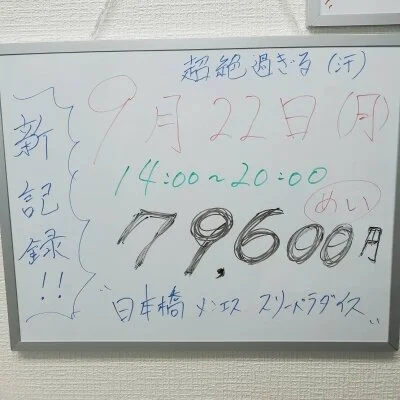 超絶過ぎる(汗)
新記録!!
9月22日(月)
14:00~20:00
めい
79,600円
"日本橋 メンエス スリードラダイス"